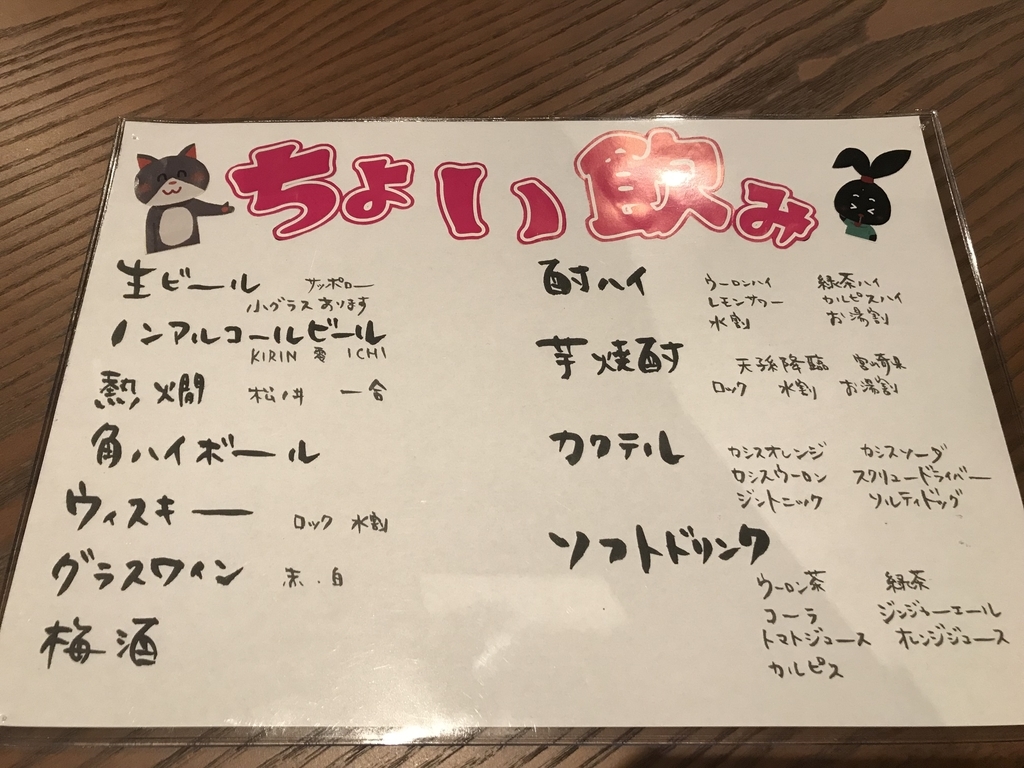 ちょい飲み
生ビール サッポロー
小グラスあります
ノンアルコールビール
KIRIN 零 ICHI
熱燗 松ノ井 一合
角ハイボール
ウィスキー ロック 水割
グラスワイン 赤.白
梅酒
酎ハイ ウーロンハイ 緑茶ハイ
レモンサワー カルピスハイ
水割 お湯割
芋焼酎 天孫降臨 宮崎県
ロック 水割 お湯割
カクテル カシスオレンジ カシスソーダ
カシスウーロン スクリュードライバー
ジントニック ソルティドッグ
ソフトドリンク
ウーロン茶 緑茶
コーラ ジンジャーエール
トマトジュース オレンジジュース
カルピス